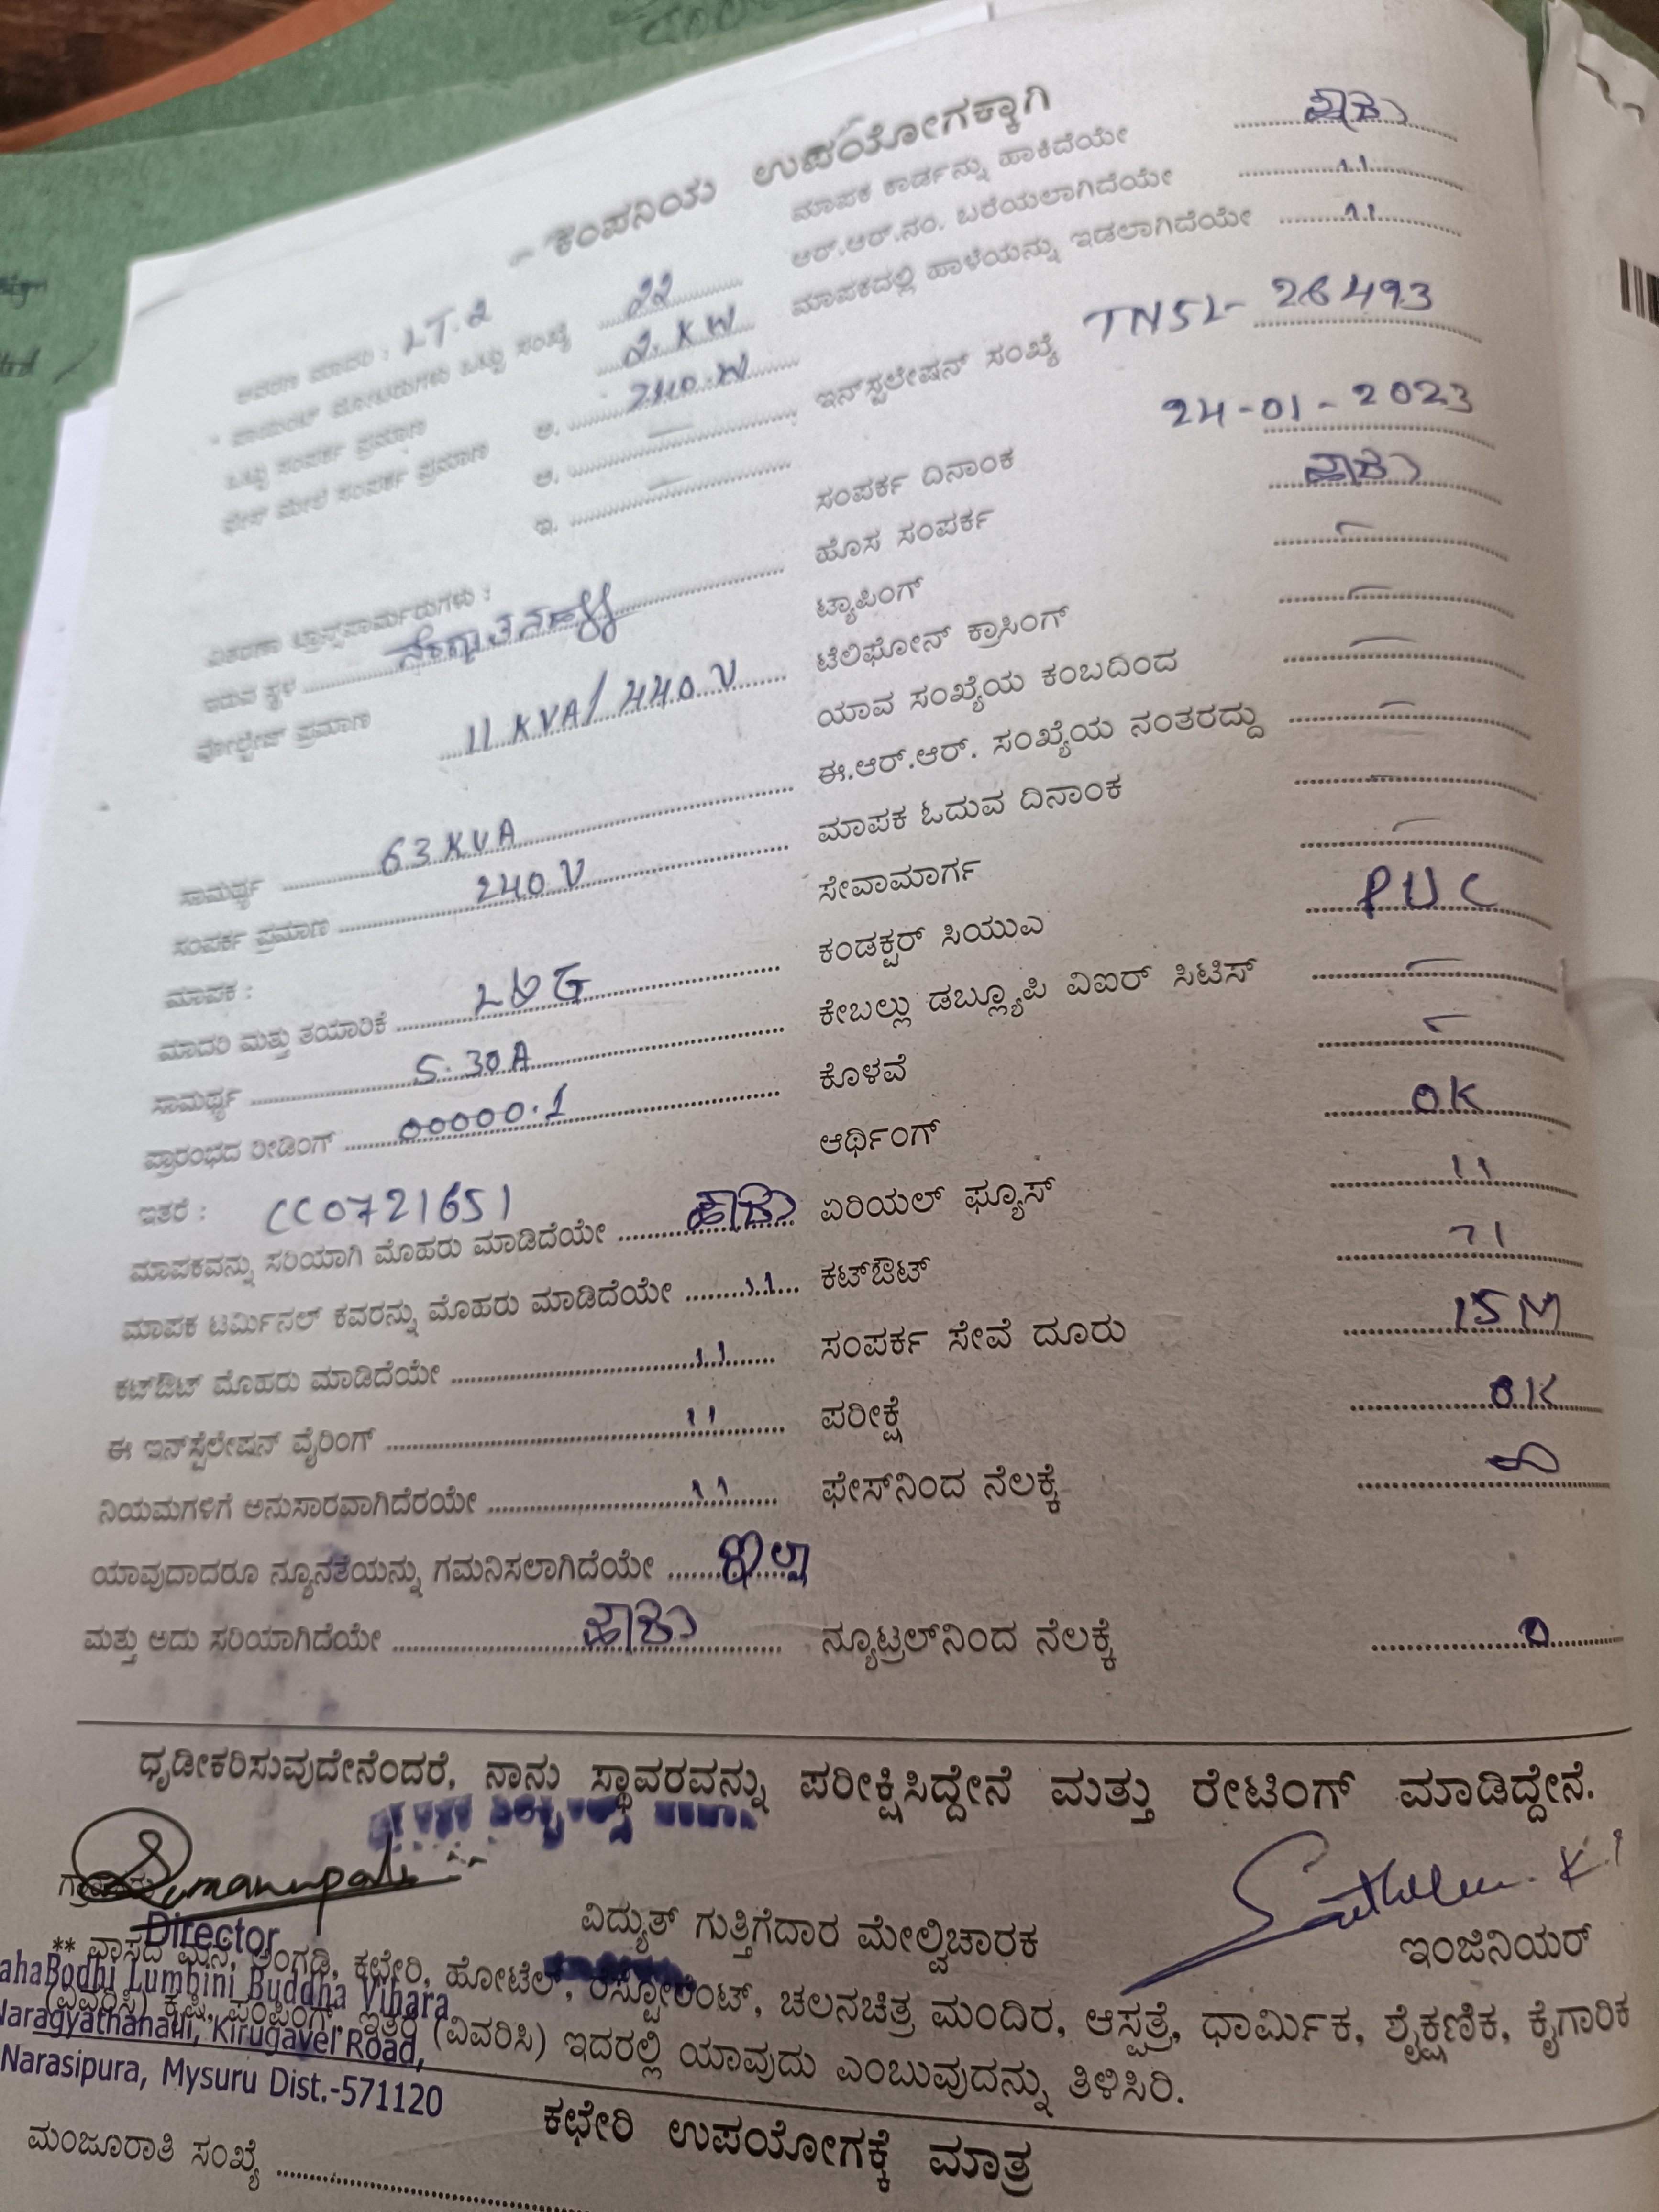 ಕಂಪನಿಯ ಉಪಯೋಗಕ್ಕಾಗಿ
ಮಾದರಿ : LT.2
ಒಟ್ಟು ಸಂಖ್ಯೆ 22
ಒಟ್ಟು ಸಂಪರ್ಕ ಪ್ರಮಾಣ 2 KW
ಮೇಲೆ ಸಂಪರ್ಕ ಪ್ರಮಾಣ ಅ. 240 W
ಆ. —
ಇ. —
ಇರುವ ಸ್ಥಳ
ವೋಲ್ಟೇಜ್ ಪ್ರಮಾಣ 11 KVA/ 440 V
ಸಾಮರ್ಥ್ಯ 63 KVA
ಸಂಪರ್ಕ ಪ್ರಮಾಣ 240 V
ಮಾಪಕ :
ಮಾದರಿ ಮತ್ತು ತಯಾರಿಕೆ L&G
ಸಾಮರ್ಥ್ಯ 5.30A
ಪ್ರಾರಂಭದ ರೀಡಿಂಗ್ 00000.1
ಇತರೆ : CC0721651
ಮಾಪಕವನ್ನು ಸರಿಯಾಗಿ ಮೊಹರು ಮಾಡಿದೆಯೇ ಹೌದು
ಮಾಪಕ ಟರ್ಮಿನಲ್ ಕವರನ್ನು ಮೊಹರು ಮಾಡಿದೆಯೇ 11
ಕಟ್‌ಔಟ್ ಮೊಹರು ಮಾಡಿದೆಯೇ 11
ಈ ಇನ್‌ಸ್ಟೆಲೇಷನ್ ವೈರಿಂಗ್ 11
ನಿಯಮಗಳಿಗೆ ಅನುಸಾರವಾಗಿದೆರಯೇ 11
ಯಾವುದಾದರೂ ನ್ಯೂನತೆಯನ್ನು ಗಮನಿಸಲಾಗಿದೆಯೇ ಇಲ್ಲ
ಮತ್ತು ಅದು ಸರಿಯಾಗಿದೆಯೇ ಹೌದು
ಮಾಪಕ ಕಾರ್ಡನ್ನು ಹಾಕಿದೆಯೇ ಹೌದು
ಆರ್.ಆರ್.ನಂ. ಬರೆಯಲಾಗಿದೆಯೇ 11
ಮಾಪಕದಲ್ಲಿ ಹಾಳೆಯನ್ನು ಇಡಲಾಗಿದೆಯೇ 11
ಇನ್‌ಸ್ಟಲೇಷನ್ ಸಂಖ್ಯೆ TNSL- 26493
ಸಂಪರ್ಕ ದಿನಾಂಕ 24-01-2023
ಹೊಸ ಸಂಪರ್ಕ ಹೌದು
ಟ್ಯಾಪಿಂಗ್ —
ಟೆಲಿಫೋನ್ ಕ್ರಾಸಿಂಗ್ —
ಯಾವ ಸಂಖ್ಯೆಯ ಕಂಬದಿಂದ —
ಈ.ಆರ್.ಆರ್. ಸಂಖ್ಯೆಯ ನಂತರದ್ದು —
ಮಾಪಕ ಓದುವ ದಿನಾಂಕ —
ಸೇವಾಮಾರ್ಗ —
ಕಂಡಕ್ಟರ್ ಸಿಯುಎ PVC
ಕೇಬಲ್ಲು ಡಬ್ಲ್ಯೂಪಿ ವಿಐರ್ ಸಿಟಿಸ್ —
ಕೊಳವೆ —
ಆರ್ಥಿಂಗ್ OK
ಏರಿಯಲ್ ಫ್ಯೂಸ್ 11
ಕಟ್‌ಔಟ್ 11
ಸಂಪರ್ಕ ಸೇವೆ ದೂರು 15 M
ಪರೀಕ್ಷೆ OK
ಫೇಸ್‌ನಿಂದ ನೆಲಕ್ಕೆ ∞
ನ್ಯೂಟ್ರಲ್‌ನಿಂದ ನೆಲಕ್ಕೆ 0
ಧೃಡೀಕರಿಸುವುದೇನೆಂದರೆ, ನಾನು ಸ್ಥಾವರವನ್ನು ಪರೀಕ್ಷಿಸಿದ್ದೇನೆ ಮತ್ತು ರೇಟಿಂಗ್ ಮಾಡಿದ್ದೇನೆ.
ವಿದ್ಯುತ್ ಗುತ್ತಿಗೆದಾರ ಮೇಲ್ವಿಚಾರಕ
ಇಂಜಿನಿಯರ್
Director
ahaBodhi Lumbini Buddha Vihara
Naragyathahalli, Kirugavel Road,
Narasipura, Mysuru Dist.-571120
** ವಾಸದ ಮನೆ, ಅಂಗಡಿ, ಕಛೇರಿ, ಹೋಟೆಲ್, ರೆಸ್ಟೋರೆಂಟ್, ಚಲನಚಿತ್ರ ಮಂದಿರ, ಆಸ್ಪತ್ರೆ, ಧಾರ್ಮಿಕ, ಶೈಕ್ಷಣಿಕ, ಕೈಗಾರಿಕ
(ವಿವರಿಸಿ) ಕೃಷಿ, ಪಂಪಿಂಗ್, ಇತರೆ (ವಿವರಿಸಿ) ಇದರಲ್ಲಿ ಯಾವುದು ಎಂಬುವುದನ್ನು ತಿಳಿಸಿರಿ.
ಕಛೇರಿ ಉಪಯೋಗಕ್ಕೆ ಮಾತ್ರ
ಮಂಜೂರಾತಿ ಸಂಖ್ಯೆ